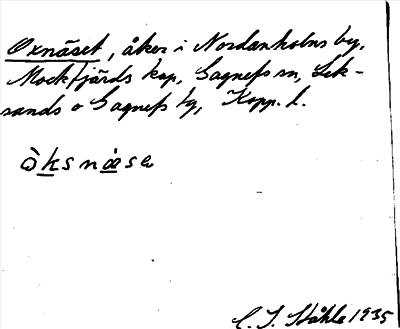 Oxnäset, åker i Nordanholns by,
Mockfjärds kap, Gagnefs sn, Lek-
sands o Gagnefs tg, Kopp. l.
òksnäse
C. I. Ståhle 1935